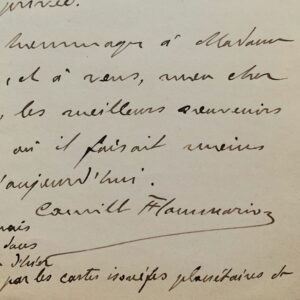 privée.
hommages à Madame
, et à vous, mon cher
, les meilleurs souvenirs
où il faisait moins
'aujourd'hui.
Camille Flammarion
mais
dans
d'hier
par les cartes planétaires de